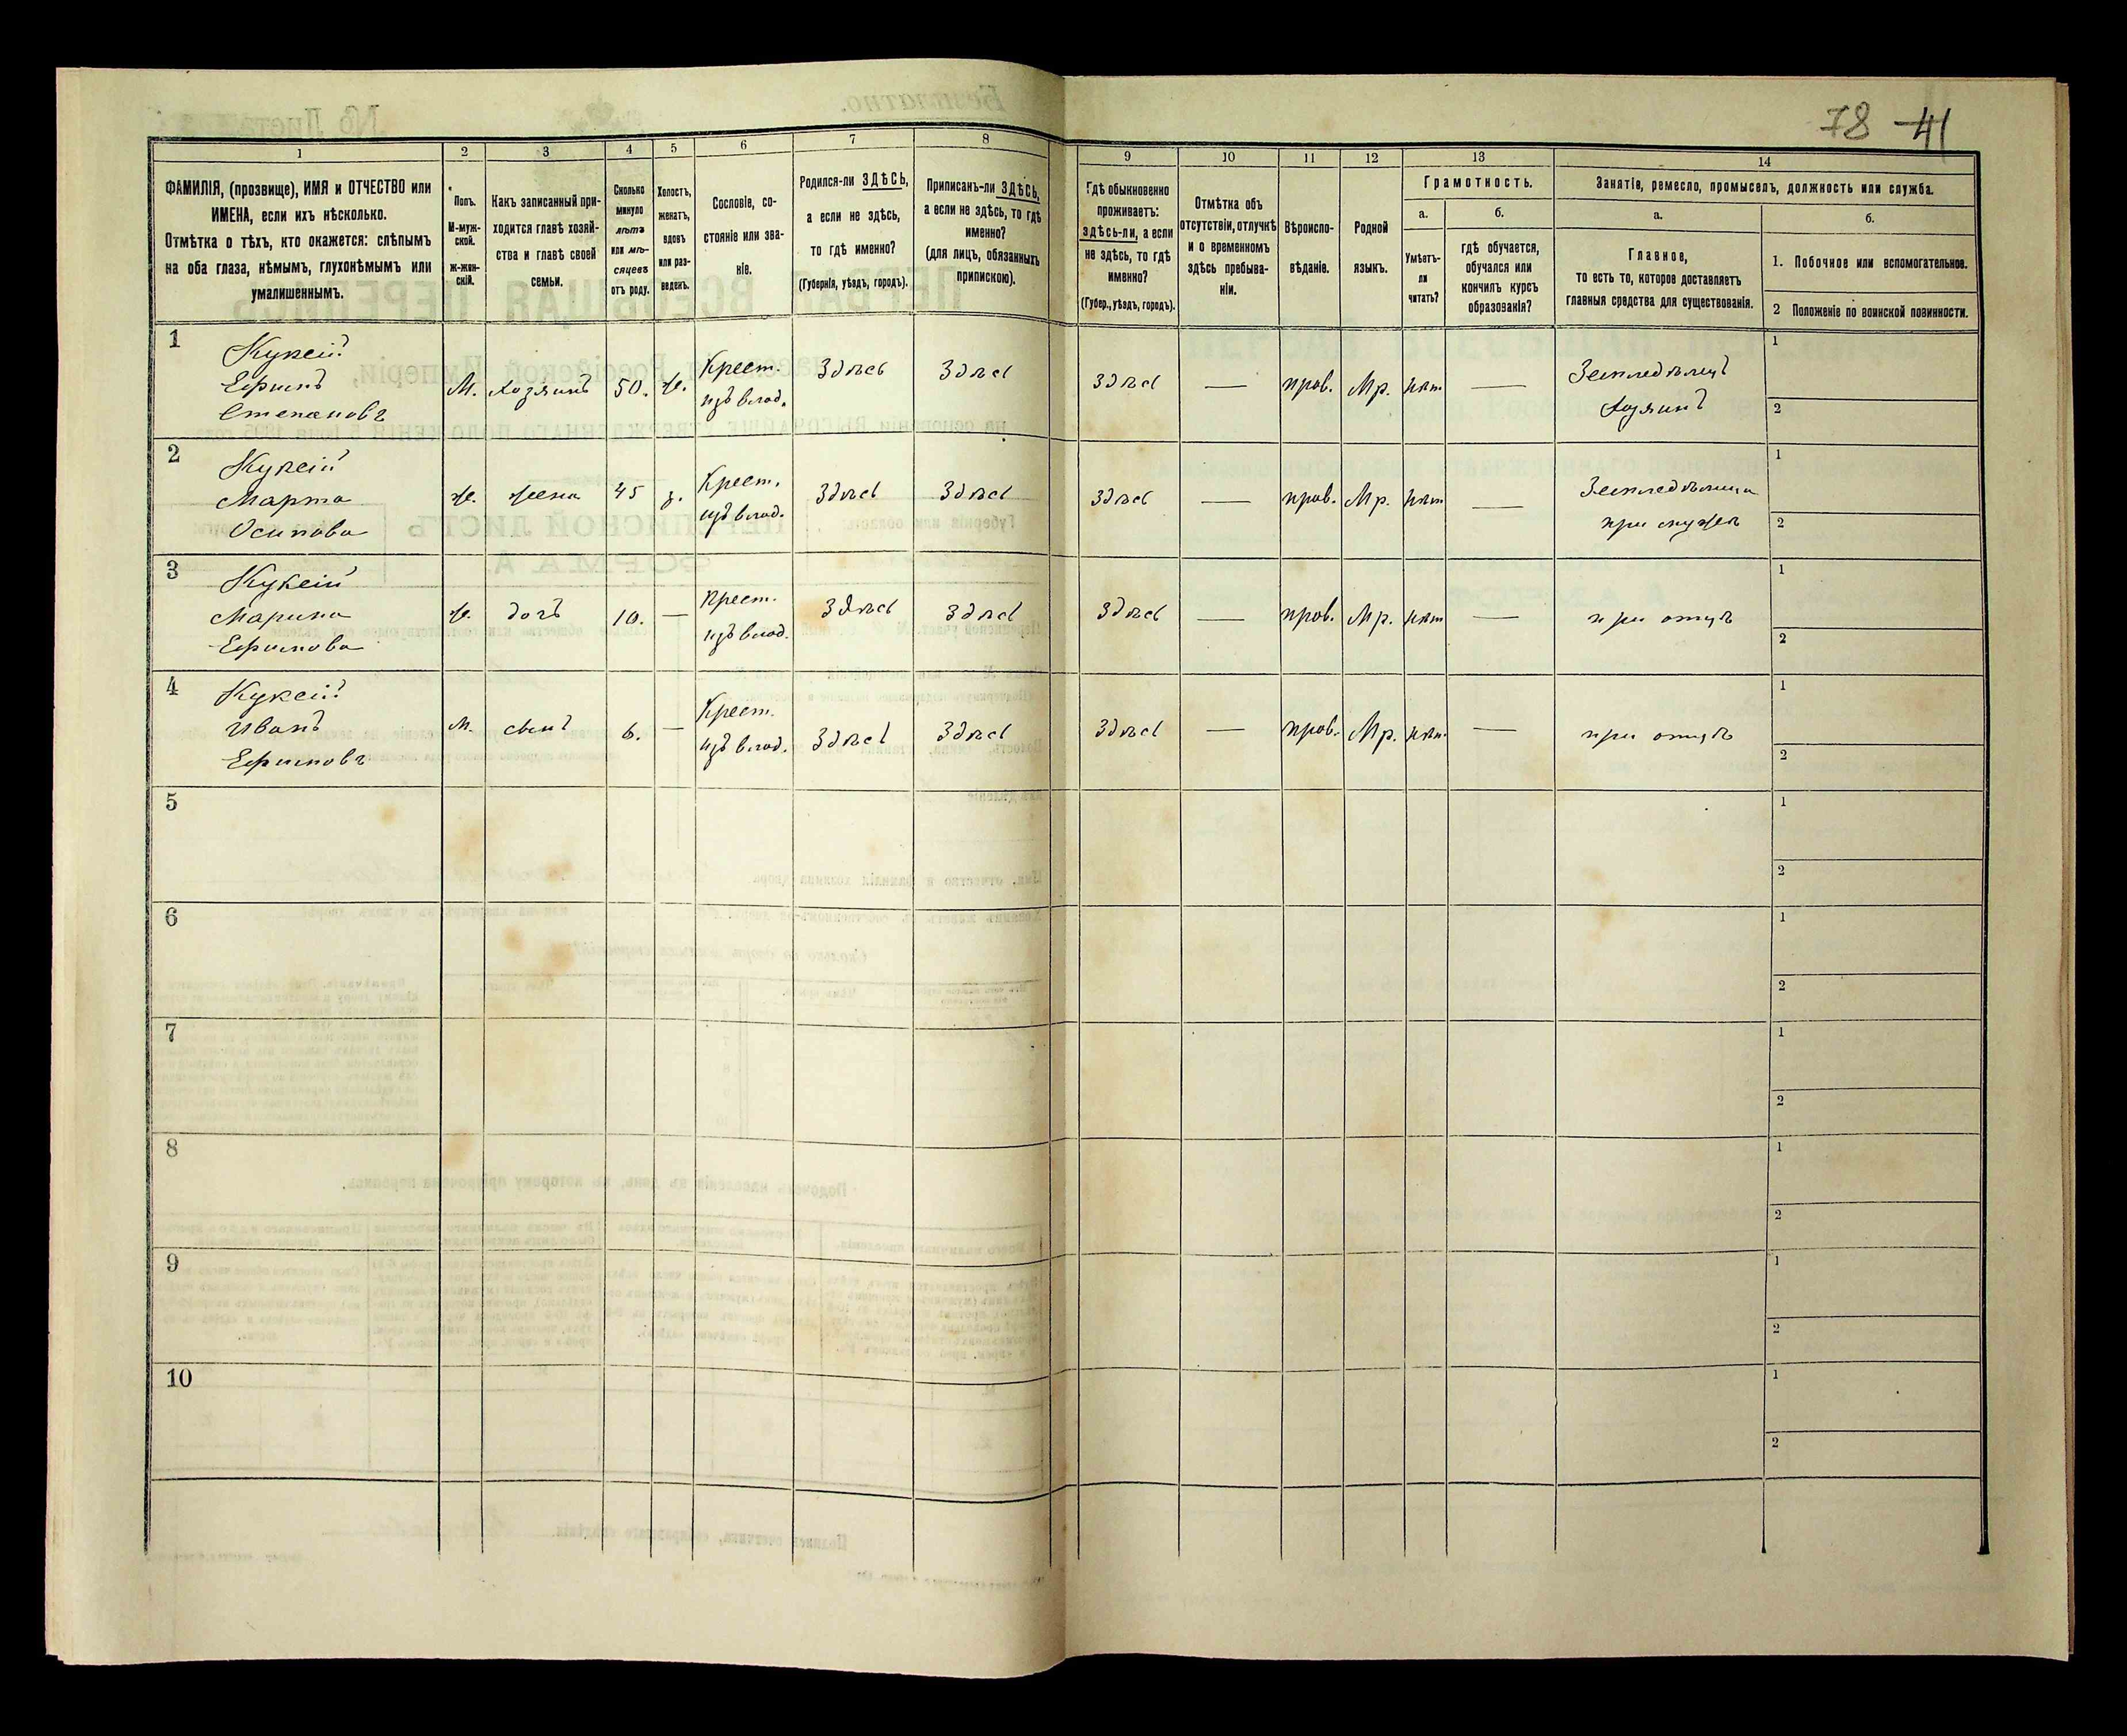 78 41
1
2
3
4
5
6
7
8
9
10
11
12
13
14
ФАМИЛІЯ, (прозвище), ИМЯ и ОТЧЕСТВО или
ИМЕНА, если ихъ нѣсколько.
Отмѣтка о тѣхъ, кто окажется: слѣпымъ
на оба глаза, нѣмымъ, глухонѣмымъ или
умалишеннымъ.
Полъ.
М-муж-
ской.
ж-жен-
скій.
Какъ записанный при-
ходится главѣ хозяй-
ства и главѣ своей
семьи.
Сколько
минуло
лѣтъ
или мѣ-
сяцевъ
отъ роду.
Холостъ,
женатъ,
вдовъ
или раз-
веденъ.
Сословіе, со-
стояніе или зва-
ніе.
Родился-ли ЗДѢСЬ,
а если не здѣсь,
то гдѣ именно?
(Губернія, уѣздъ, городъ).
Приписанъ-ли ЗДѢСЬ,
а если не здѣсь, то гдѣ
именно?
(для лицъ, обязанныхъ
припискою).
Гдѣ обыкновенно
проживаетъ:
здѣсь-ли, а если
не здѣсь, то гдѣ
именно?
(Губер., уѣздъ, городъ).
Отмѣтка объ
отсутствіи, отлучкѣ
и о временномъ
здѣсь пребыва-
ніи.
Вѣроиспо-
вѣданіе.
Родной
языкъ.
Грамотность.
а.
Умѣетъ-
ли
читать?
б.
гдѣ обучается,
обучался или
кончилъ курсъ
образованія?
Занятіе, ремесло, промыселъ, должность или служба.
а.
Главное,
то есть то, которое доставляетъ
главныя средства для существованія.
б.
1. Побочное или вспомогательное.
2 Положеніе по воинской повинности.
1
Куксій
Ефимъ
Степановъ
М. хозяинъ 50. ж.
Крест.
изъ влад.
Здѣсь Здѣсь Здѣсь — прав. Мр. нѣт —
Земледѣлецъ
хозяинъ
1
2
2
Куксій
Марта
Осипова
ж. жена 45 з.
Крест.
изъ влад.
Здѣсь Здѣсь Здѣсь — прав. Мр. нѣт —
Земледѣлица
при мужѣ
1
2
3
Куксій
Марина
Ефимова
ж. дочь 10. —
Крест.
изъ влад.
Здѣсь Здѣсь Здѣсь — прав. Мр. нѣт —
при отцѣ
1
2
4
Куксій
Иванъ
Ефимовъ
М. сынъ 6. —
Крест.
изъ влад.
Здѣсь Здѣсь Здѣсь — прав. Мр. нѣт. —
при отцѣ
1
2
5
1
2
6
1
2
7
1
2
8
1
2
9
1
2
10
1
2